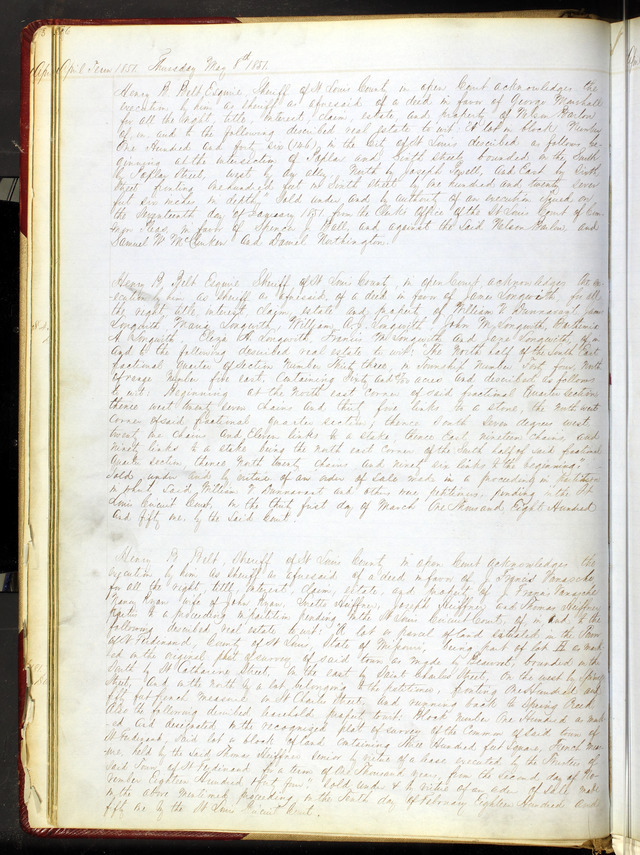 April Term 1851. Thursday May 8th 1851.
Henry B. Belt Esquire Sheriff of St Louis County in open Court acknowledges the
execution by him as sheriff as aforesaid of a deed in favor of George Marshall
for all the right, title, interest, claim, estate and property of Nelson
of in and to the following described real estate to wit: A lot in block Number
One Hundred and forty six (146) in the City of St Louis described as follows, be-
ginning at the intersection of Poplar and Sixth streets, bounded on the South
by Poplar Street, West by an alley, North by Joseph and East by Sixth
Street, fronting one hundred feet on Sixth street by one hundred and twenty seven
feet six inches in depth, Sold under and by authority of an execution issued on
the day of January 1851, from the Clerks Office of the St Louis Court of Com-
mon Pleas, in favor of Spencer J. Ball, and against the said Nelson and
Samuel W. and Daniel Northington.
Henry B. Belt Esquire, Sheriff of St Louis County, in open Court acknowledges the ex-
ecution by him as sheriff as aforesaid of a deed in favor of James Longwith, for all
the right, title, interest, claim, estate and property of William V. Dunnavant,
Longwith, Longwith, William A. J. Longwith, John W. Longwith,
A. Longwith, Eliza A. Longwith, Francis M Longwith and Longwith, of in
and to the following described real estate to wit: The North half of the South East
fractional Quarter of Section Number thirty three, in Township Number forty four, North
of range Number five east, Containing acres and described as follows
to wit: Beginning at the North east corner of said fractional Quarter section,
thence west twenty seven chains and thirty four links to a stone, the North west
corner of said fractional quarter section, thence South seven degrees west
twenty one chains and Eleven links to a stake, thence East, nineteen chains and
ninety links to a stake being the north east corner of the South half of said fractional
Quarter section thence North twenty chains and ninety six links to the beginning.
Sold under and by virtue of an order of sale made in a proceeding in partition
in which said William V. Dunnavant and others were petitioners, pending in the St
Louis Circuit Court, on the thirty first day of March One Thousand Eight Hundred
and fifty one, by the said Court.
Henry B. Belt, Sheriff of St Louis County in open Court acknowledges the
execution by him as sheriff as aforesaid of a deed in favor of J. Francis
for all the right, title, interest, claim, estate, and property of J. Francis
Ryan wife of John Ryan, Joseph and Thomas
to a proceeding in partition pending in the St Louis Circuit Court, of in and to the
following described real estate to wit: "A lot or parcel of land situated in the Town
of St Ferdinand, County of St Louis, State of Missouri, being part of lot as mark-
ed in the original plat of survey of said town as made by bounded on the
South by St Catharine Street, on the east by Saint Charles Street, on the west by Spring
Street, and on the north by a lot belonging to the petitioners, fronting One Hundred and
fifty feet french measure, on St Charles Street, and running back to Spring Creek.
Also the following described leasehold property to wit: Block Number One Hundred as mark-
ed and designated in the recognized plat of survey of the Common of said town of
St Ferdinand, Said lot or block of land Containing Three Hundred feet Square, French Meas-
ure, held by the said Thomas Senior by virtue of a lease executed by the Trustees of
said Town of St Ferdinand for a term of One Thousand years, from the second day of No-
vember Eighteen Hundred and forty four." Sold under & by virtue of an order of sale made
in the above mentioned proceeding on the Tenth day of February Eighteen Hundred and
fifty one by the St Louis Circuit Court.